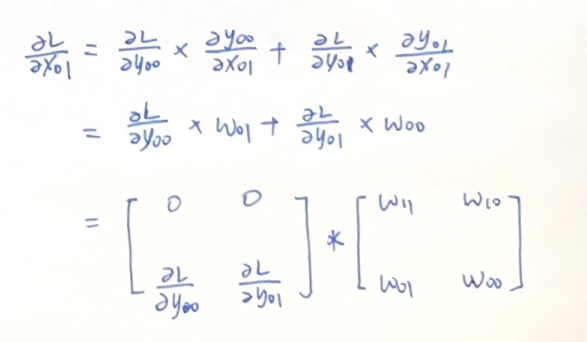 ∂L/∂X01 = ∂L/∂y00 × ∂y00/∂X01 + ∂L/∂y01 × ∂y01/∂X01
= ∂L/∂y00 × W01 + ∂L/∂y01 × W00
= [ 0 0 ; ∂L/∂y00 ∂L/∂y01 ] * [ W11 W10 ; W01 W00 ]